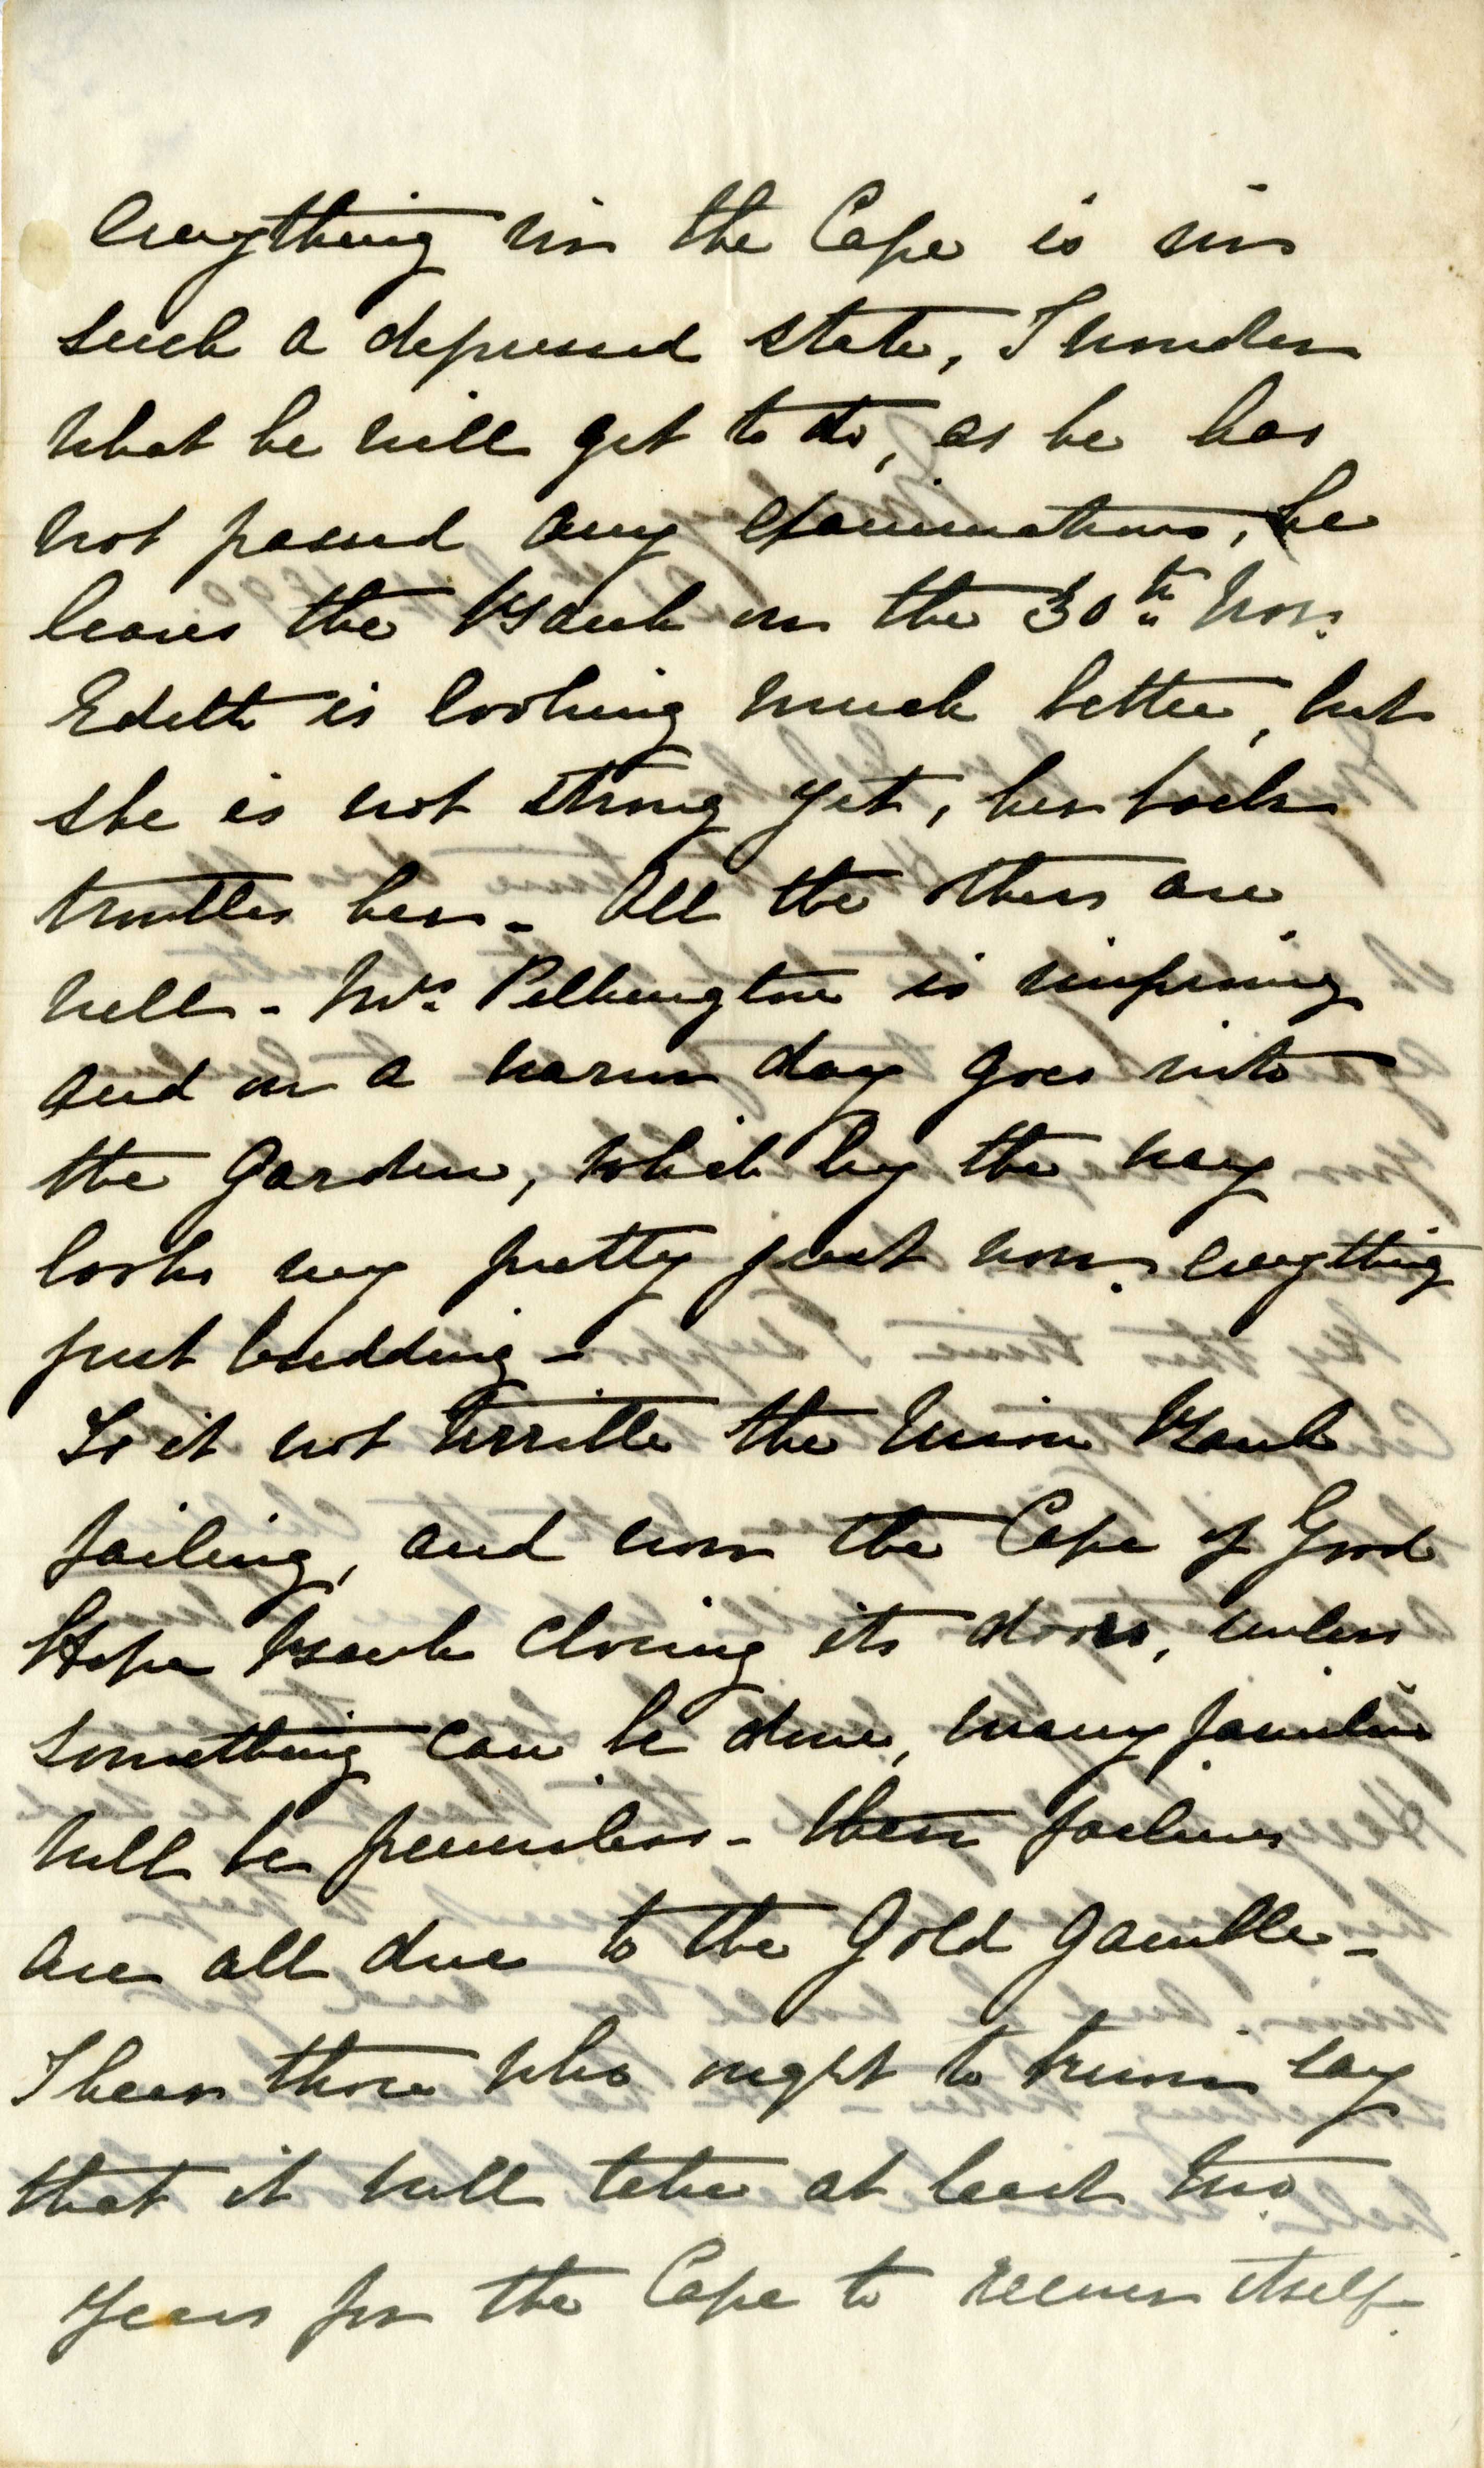 everything in the Cape is in
such a depressed state, I wonder
what he will get to do, as he has
not passed any examinations, he
leaves the Bank on the 30th Nov.
Edith is looking much better, but
she is not strong yet, her back
troubles her - All the others are
well - Mrs Pilkington is improving
and on a warm day goes into
the garden, which by the way
looks very pretty just now. everything
just budding -
Is it not terrible the Union Bank
failing, and now the Cape of Good
Hope Bank closing its doors, unless
something can be done, many families
will be penniless - these failures
are all due to the Gold gamble -
I hear those who ought to know say
that it will take at least two
years for the Cape to recover itself.